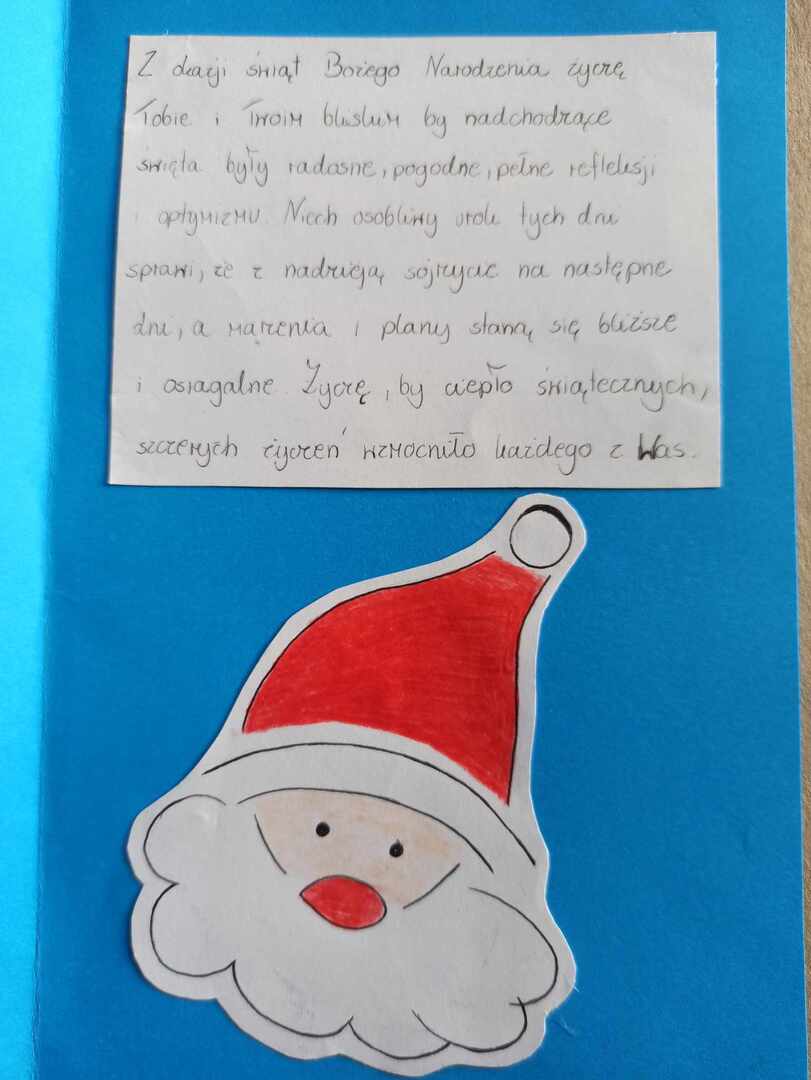 Z okazji świąt Bożego Narodzenia życzę
Tobie i Twoim bliskim by nadchodzące
święta były radosne, pogodne, pełne refleksji
i optymizmu. Niech osobliwy urok tych dni
sprawi, że z nadzieją spojrzycie na następne
dni, a marzenia i plany staną się bliższe
i osiągalne. Życzę, by ciepło świątecznych,
szczerych życzeń wzmocniło każdego z Was.